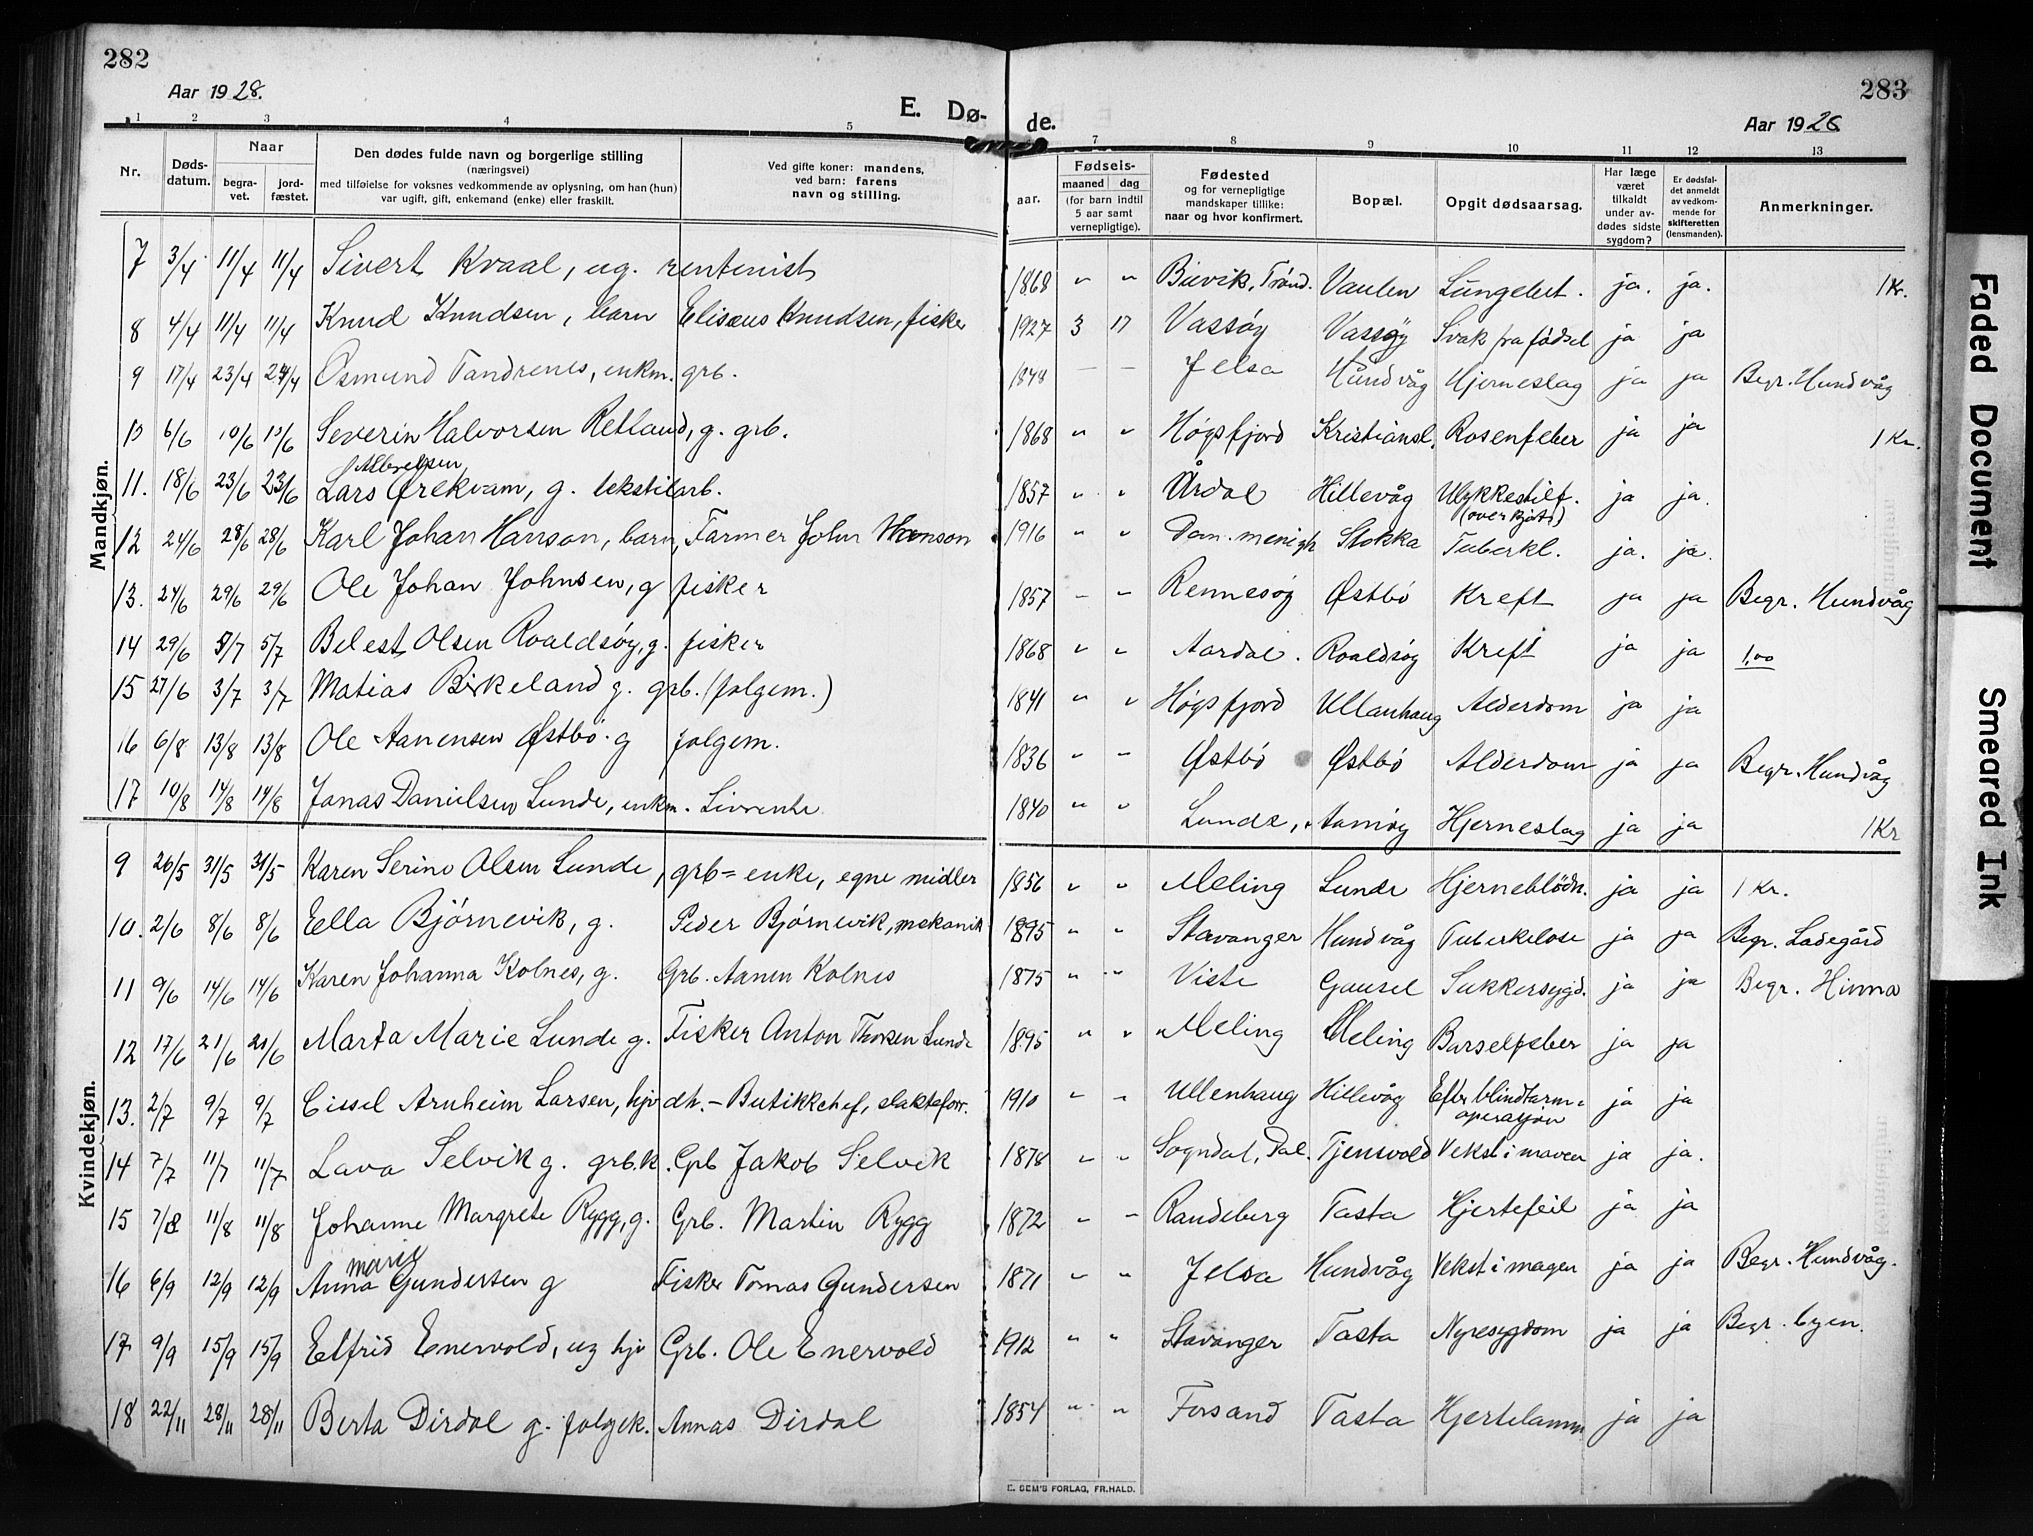 282
Aar 1928.
E. Dø-
de.
283
Aar 1928
1 2 3 4 5 7 8 9 10 11 12 13
Nr.
Døds-
datum.
Naar
begra-
vet.
jord-
fæstet.
Den dødes fulde navn og borgerlige stilling
(næringsvei)
med tilføielse for voksnes vedkommende av oplysning, om han (hun)
var ugift, gift, enkemand (enke) eller fraskilt.
Ved gifte koner: mandens,
ved barn: farens
navn og stilling.
aar.
Fødsels-
maaned dag
(for barn indtil
5 aar samt
vernepligtige).
Fødested
og for vernepligtige
mandskaper tillike:
naar og hvor konfirmert.
Bopæl.
Opgit dødsaarsag.
Har læge
været
tilkaldt
under av-
dødes sidste
sygdom?
Er dødsfal-
det anmeldt
av vedkom-
mende for
skifteretten
(lensmanden).
Anmerkninger.
Mandkjøn.
7 3/4 11/4 11/4 Sivert Kvaal, ug. rentenist 1868 " " Buvik, Trönd. Vaulen Lungebet. ja. ja. 1 Kr.
8 4/4 11/4 11/4 Knud Knudsen, barn Elisæus Knudsen, fisker 1927 3 17 Vassøy Vassøy Svak fra fødsel ja ja
9 17/4 23/4 24/4 Osmund Tandrenes, enkm. grb. 1848 — — Jelsa Hundvåg Hjerneslag ja ja Begr. Hundvåg
10 6/6 10/6 10/6 Severin Halvorsen Retland, g. grb. 1868 " " Høgsfjord Kristiansl. Rosenfeber ja ja 1 Kr.
11. 18/6 23/6 23/6 Lars Albretsen Ørekvam, g. tekstilarb. 1857 " " Årdal Hillevåg Ulykkestilf. (overkjørt) ja ja.
12 24/6 28/6 28/6 Karl Johan Hanson, barn, Farmer John Hanson 1916 " " Dom. menigh Stokka Tuberkl. ja. ja.
13. 24/6 29/6 29/6 Ole Johan Johnsen, g fisker 1857 " " Rennesøy Østbö Kreft ja ja Begr. Hundvåg
14 29/6 5/7 5/7 Belest Olsen Roaldsøy, g. fisker 1868 " " Aardal. Roaldsøy Kreft ja ja 1,00
15 27/6 3/7 3/7 Matias Birkeland g. grb. (folgem.) 1841 " " Høgsfjord Ullanhaug Alderdom ja ja
16 6/8 13/8 13/8 Ole Aanensen Østbö. g folgem. 1836 " " Østbö Østbö Alderdom ja ja Begr. Hundvåg
17 10/8 14/8 14/8 Jonas Danielsen Lunde, enkm. Livrente 1840 " " Lunde, Aamøy Hjerneslag ja ja 1 Kr
Kvindekjøn.
9 26/5 31/5 31/5 Karen Serine Olsen Lunde, grb= enke, egne midler 1856 " " Meling Lunde Hjerneblödn. ja ja 1 Kr.
10. 2/6 8/6 8/6 Eella Bjørnevik, g. Peder Bjørnevik, mekanik 1895 " " Stavanger Hundvåg Tuberkelose ja ja Begr. Ladegård
11 9/6 14/6 14/6 Karen Johanna Kolnes, g. Grb. Aanen Kolnes 1875 " " Viste Gausel Sukkersygd. ja ja Begr. Hinna
12 17/6 21/6 21/6 Marta Marie Lunde g. Fisker Anton Thorsen Lunde 1895 " " Meling Meling Barselfeber ja ja
13. 2/7 9/7 9/7 Cissel Arnheim Larsen, hjv dh. - Butikkchef, slakteforr. 1910 " " Ullenhaug Hillevåg Efter blindtarm= operasjon ja ja
14 7/7 11/7 11/7 Lava Selvik g. grb.k. Grb Jakob Selvik 1878 " " Sogndal, Dal. Tjensvold Vekst i maven ja ja.
15 7/8 11/8 11/8 Johanne Margrete Rygg, g. Grb. Martin Rygg 1872 " " Randeberg Tasta Hjertefeil ja ja
16 6/9 12/9 12/9 Anna Marie Gundersen g Fisker Tomas Gundersen 1871 " " Jelsa Hundvåg Vekst i magen ja ja Begr. Hundvåg.
17 9/9 15/9 15/9 Elfrid Enervold, ug hjv Grb. Ole Enervold 1912 " " Stavanger Tasta Nyresygdom ja ja Begr. byen.
18 22/11 28/11 28/11 Berta Dirdal g. folgek. Annas Dirdal 1854 " " Forsand Tasta Hjertelamm ja ja
E. SEM'S FORLAG, FR.HALD.
Faded Document
Smeared Ink